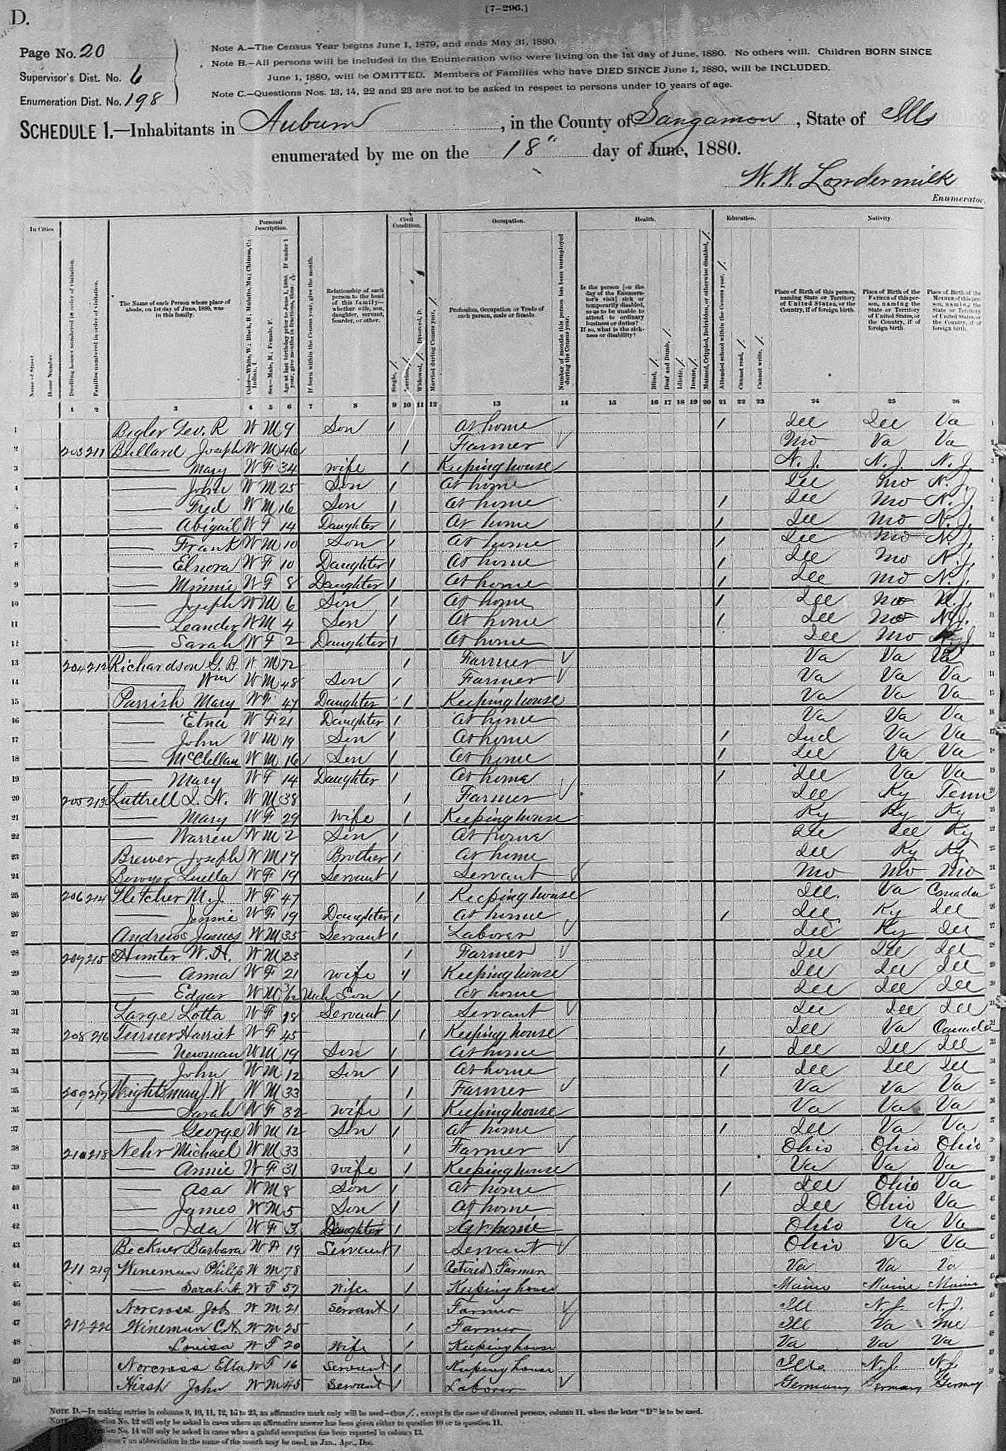 D.
[7-296.]
Page No. 20
Supervisor's Dist. No. 6
Enumeration Dist. No. 198
Note A.—The Census Year begins June 1, 1879, and ends May 31, 1880.
Note B.—All persons will be included in the Enumeration who were living on the 1st day of June, 1880. No others will. Children BORN SINCE
June 1, 1880, will be OMITTED. Members of Families who have DIED SINCE June 1, 1880, will be INCLUDED.
Note C.—Questions Nos. 13, 14, 22 and 23 are not to be asked in respect to persons under 10 years of age.
SCHEDULE 1.—Inhabitants in Auburn, in the County of Sangamon, State of Ills
enumerated by me on the 18" day of June, 1880.
W. W. Lowdermilk
Enumerator.
In Cities Personal Description. Civil Condition. Occupation. Health. Education. Nativity.
The Name of each Person whose place of abode, on 1st day of June, 1880, was in this family.
Relationship of each person to the head of this family—whether wife, son, daughter, servant, boarder, or other.
Profession, Occupation or Trade of each person, male or female.
Place of Birth of this person, naming State or Territory of United States, or the Country, if of foreign birth.
1 2 3 4 5 6 7 8 9 10 11 12 13 14 15 16 17 18 19 20 21 22 23 24 25 26
1 Bigler Geo. R W M 9 Son / At home / Ill Ill Va
2 203 211 Ballard Joseph W M 46 / Farmer Mo Va Va
3 Mary W F 34 wife / Keeping house N.J. N.J. N.J.
4 John W M 25 Son / At home Ill Mo N.J.
5 Fred W M 16 Son / At home / Ill Mo N.J.
6 Abigail W F 14 Daughter / At home / Ill Mo N.J.
7 Frank W M 10 Son / At home / Ill Mo N.J.
8 Elnora W F 10 Daughter / At home / Ill Mo N.J.
9 Minnie W F 8 Daughter / At home / Ill Mo N.J.
10 Joseph W M 6 Son / At home / Ill Mo N.J.
11 Leander W M 4 Son / At home / Ill Mo N.J.
12 Sarah W F 2 Daughter / At home Ill Mo N.J.
13 204 212 Richardson G. B. W M 72 / Farmer Va Va Va
14 Wm W M 48 Son / Farmer Va Va Va
15 Parrish Mary W F 47 Daughter / Keeping house Va Va Va
16 Etna W F 21 Daughter / At home Va Va Va
17 John W M 19 Son / At home / Ind Va Va
18 McClellan W M 16 Son / At home / Ill Va Va
19 Mary W F 14 Daughter / At home / Ill Va Va
20 205 213 Luttrell W M 38 / Farmer Ill Ky Tenn
21 Mary W F 29 Wife / Keeping house Ky Ky Ky
22 Warren W M 2 Son / At home Ill Ill Ky
23 Brewer Joseph W M 17 Brother / At home Ill Ky Ky
24 Luella W F 19 Servant / Servant Mo Mo Mo
25 206 214 Fletcher M. J. W F 47 / Keeping house Ill Va Canada
26 Jennie W F 19 Daughter / At home / Ill Ky Ill
27 Andrews James W M 35 Servant / Laborer Ill Ky Ill
28 207 215 Hunter W. H. W M 23 / Farmer Ill Ill Ill
29 Anna W F 21 wife / Keeping house Ill Ill Ill
30 Edgar W M Mch Son / At home Ill Ill Ill
31 Large Lotta W F 18 Servant / Servant Ill Ill Ill
32 208 216 Turner Harriet W F 45 / Keeping house Ill Va Canada
33 Newman W M 19 Son / At home / Ill Ill Ill
34 John W M 12 Son / At home / Ill Ill Ill
35 209 217 Wrightsman J. W W M 33 / Farmer Va Va Va
36 Sarah W F 32 wife / Keeping house Va Va Va
37 George W M 12 Son / At home / Ill Va Va
38 210 218 Nehr Michael W M 33 / Farmer Ohio Ohio Ohio
39 Annie W F 31 wife / Keeping house Va Va Va
40 Asa W M 8 Son / At home / Ill Ohio Va
41 James W M 5 Son / At home Ill Ohio Va
42 Ida W F 3 Daughter / At home Ohio Va Va
43 Bickner Barbara W F 19 Servant / Servant Ohio Va Va
44 211 219 Wineman Philip W M 78 / Retired Farmer Va Va Va
45 Sarah A. W F 57 Wife / Keeping house Maine Maine Maine
46 Norcross Job W M 21 Servant / Farmer Ill N.J. N.J.
47 212 220 Wineman C. A. W M 25 / Farmer Ill Va Me
48 Louisa W F 20 Wife / Keeping house Va Va Va
49 Norcross Etta W F 16 Servant / Keeping house Ills N.J. N.J.
50 Hirsh John W M 45 Servant / Laborer Germany Germany Germany
Note D.—In making entries in columns 9, 10, 11, 12, 16 to 23, an affirmative mark only will be used—thus /, except in the case of divorced persons, column 11, when the letter "D" is to be used.
Question No. 12 will only be asked in cases where an affirmative answer has been given either to question 10 or to question 11.
No. 14 will only be asked in cases when a gainful occupation has been reported in column 13.
7 an abbreviation in the name of the month may be used, as Jan., Apr., Dec.